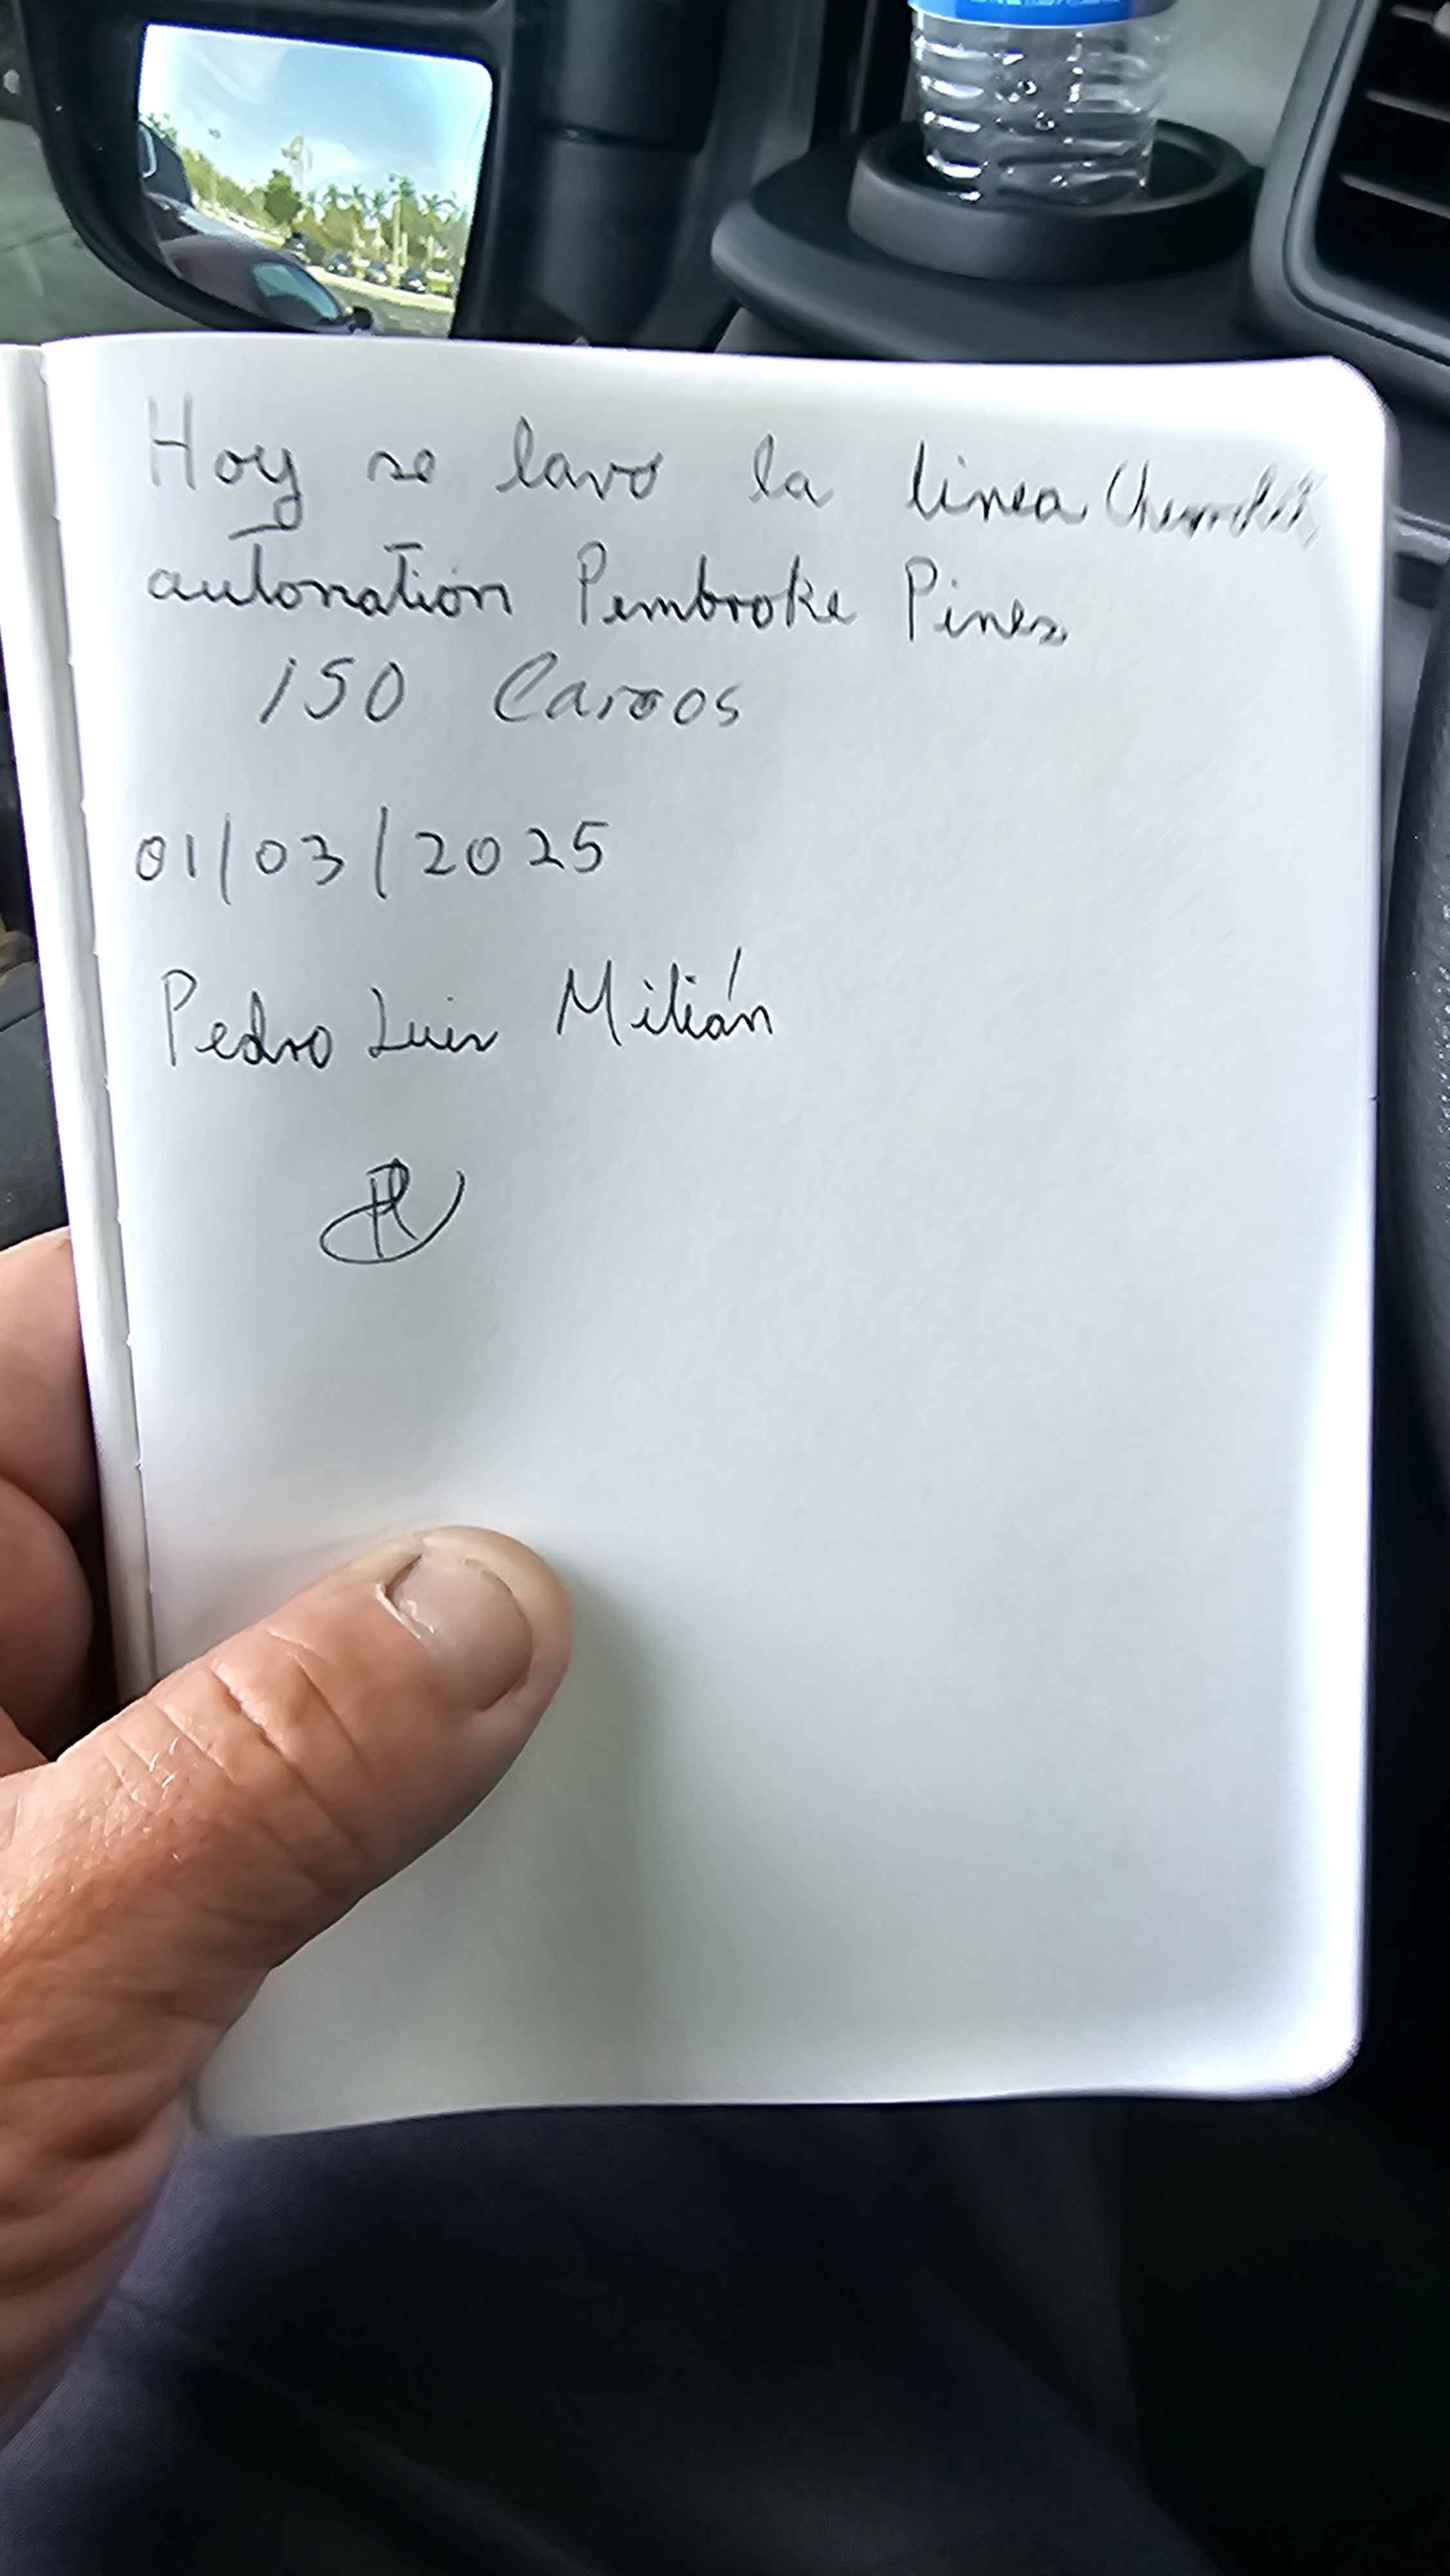 Hoy se lavo la linea Chevrolet,
autonation Pembroke Pines
150 Carros
01/03/2025
Pedro Luis Milián